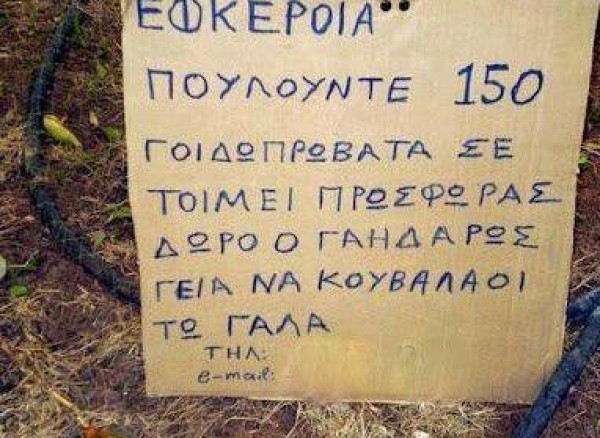 ΕΦΚΕΡΟΙΑ"
ΠΟΥΛΟΥΝΤΕ 150
ΓΟΙΔΩΠΡΩΒΑΤΑ ΣΕ
ΤΟΙΜΕΙ ΠΡΩΣΦΩΡΑΣ
ΔΩΡΟ Ο ΓΑΗΔΑΡΩΣ
ΓΕΙΑ ΝΑ ΚΟΥΒΑΛΑΟΙ
ΤΩ ΓΑΛΑ
ΤΗΛ:
e-mail: